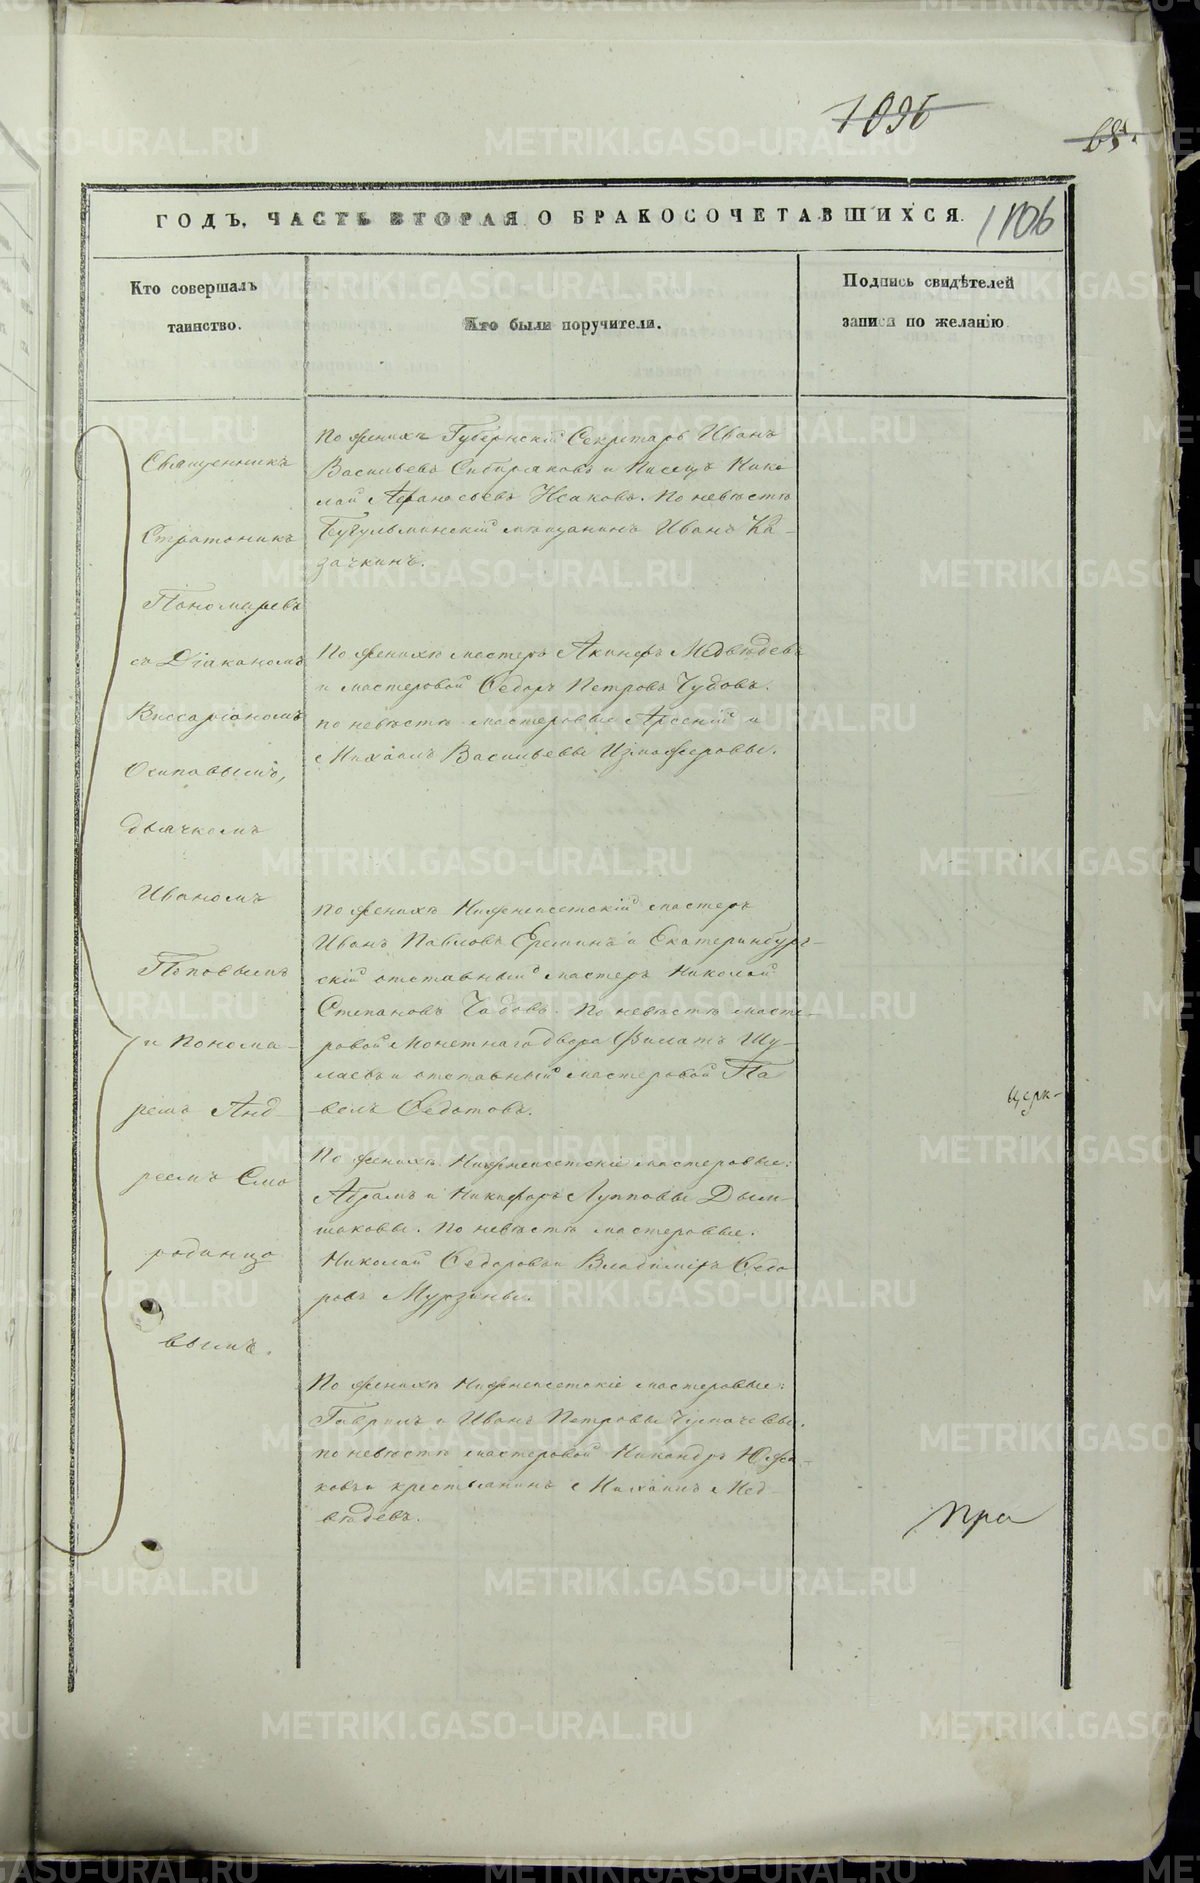 1096
65.
ГОДЪ, ЧАСТЬ ВТОРАЯ О БРАКОСОЧЕТАВШИХСЯ.
1106
Кто совершалъ
таинство.
Кто были поручители.
Подпись свидѣтелей
записи по желанію
Священникъ
Стратоникъ
Пономаревъ
съ Діакономъ
Виссаріономъ
Осиповымъ,
дьячкомъ
Иваномъ
Поповымъ
и Понома-
ремъ Анд-
реемъ Смо
родинцо
вымъ.
По женихѣ Губернскій Секретарь Иванъ
Васильевъ Сибиряковъ и Писецъ Нико
лай Афанасьевъ Исаковъ. По невѣстѣ
Бугульминскій мѣщанинъ Иванъ Ка-
зачкинъ.
По женихѣ мастеръ Акинфъ Медвѣдевъ
и мастеровой Ѳедоръ Петровъ Чудовъ.
по невѣстѣ мастеровые Арсеній и
Михаилъ Васильевы Изможеровы.
по женихѣ Нижнеисетскій мастеръ
Иванъ Павловъ Ереминъ и Екатеринбург-
скій отставный мастеръ Николай
Степановъ Чадовъ. По невѣстѣ масте-
ровой Монетнаго двора Филатъ Шу-
лаевъ и отставный мастеровой Па
велъ Ѳедотовъ.
По женихѣ Нижнеисетскіе мастеровые:
Абрамъ и Никифоръ Лупповы Дым-
шаковы. По невѣстѣ мастеровые:
Николай Ѳедоровъ и Владиміръ Ѳедо
ровъ Мурзины.
По женихѣ Нижнеисетскіе мастеровые:
Гаврилъ и Иванъ Петровы Чумачевы.
по невѣстѣ мастеровой Никандръ Южа-
ковъ и крестьянинъ Михаилъ Мед-
вѣдевъ.
церк-
При
METRIKI.GASO-URAL.RU